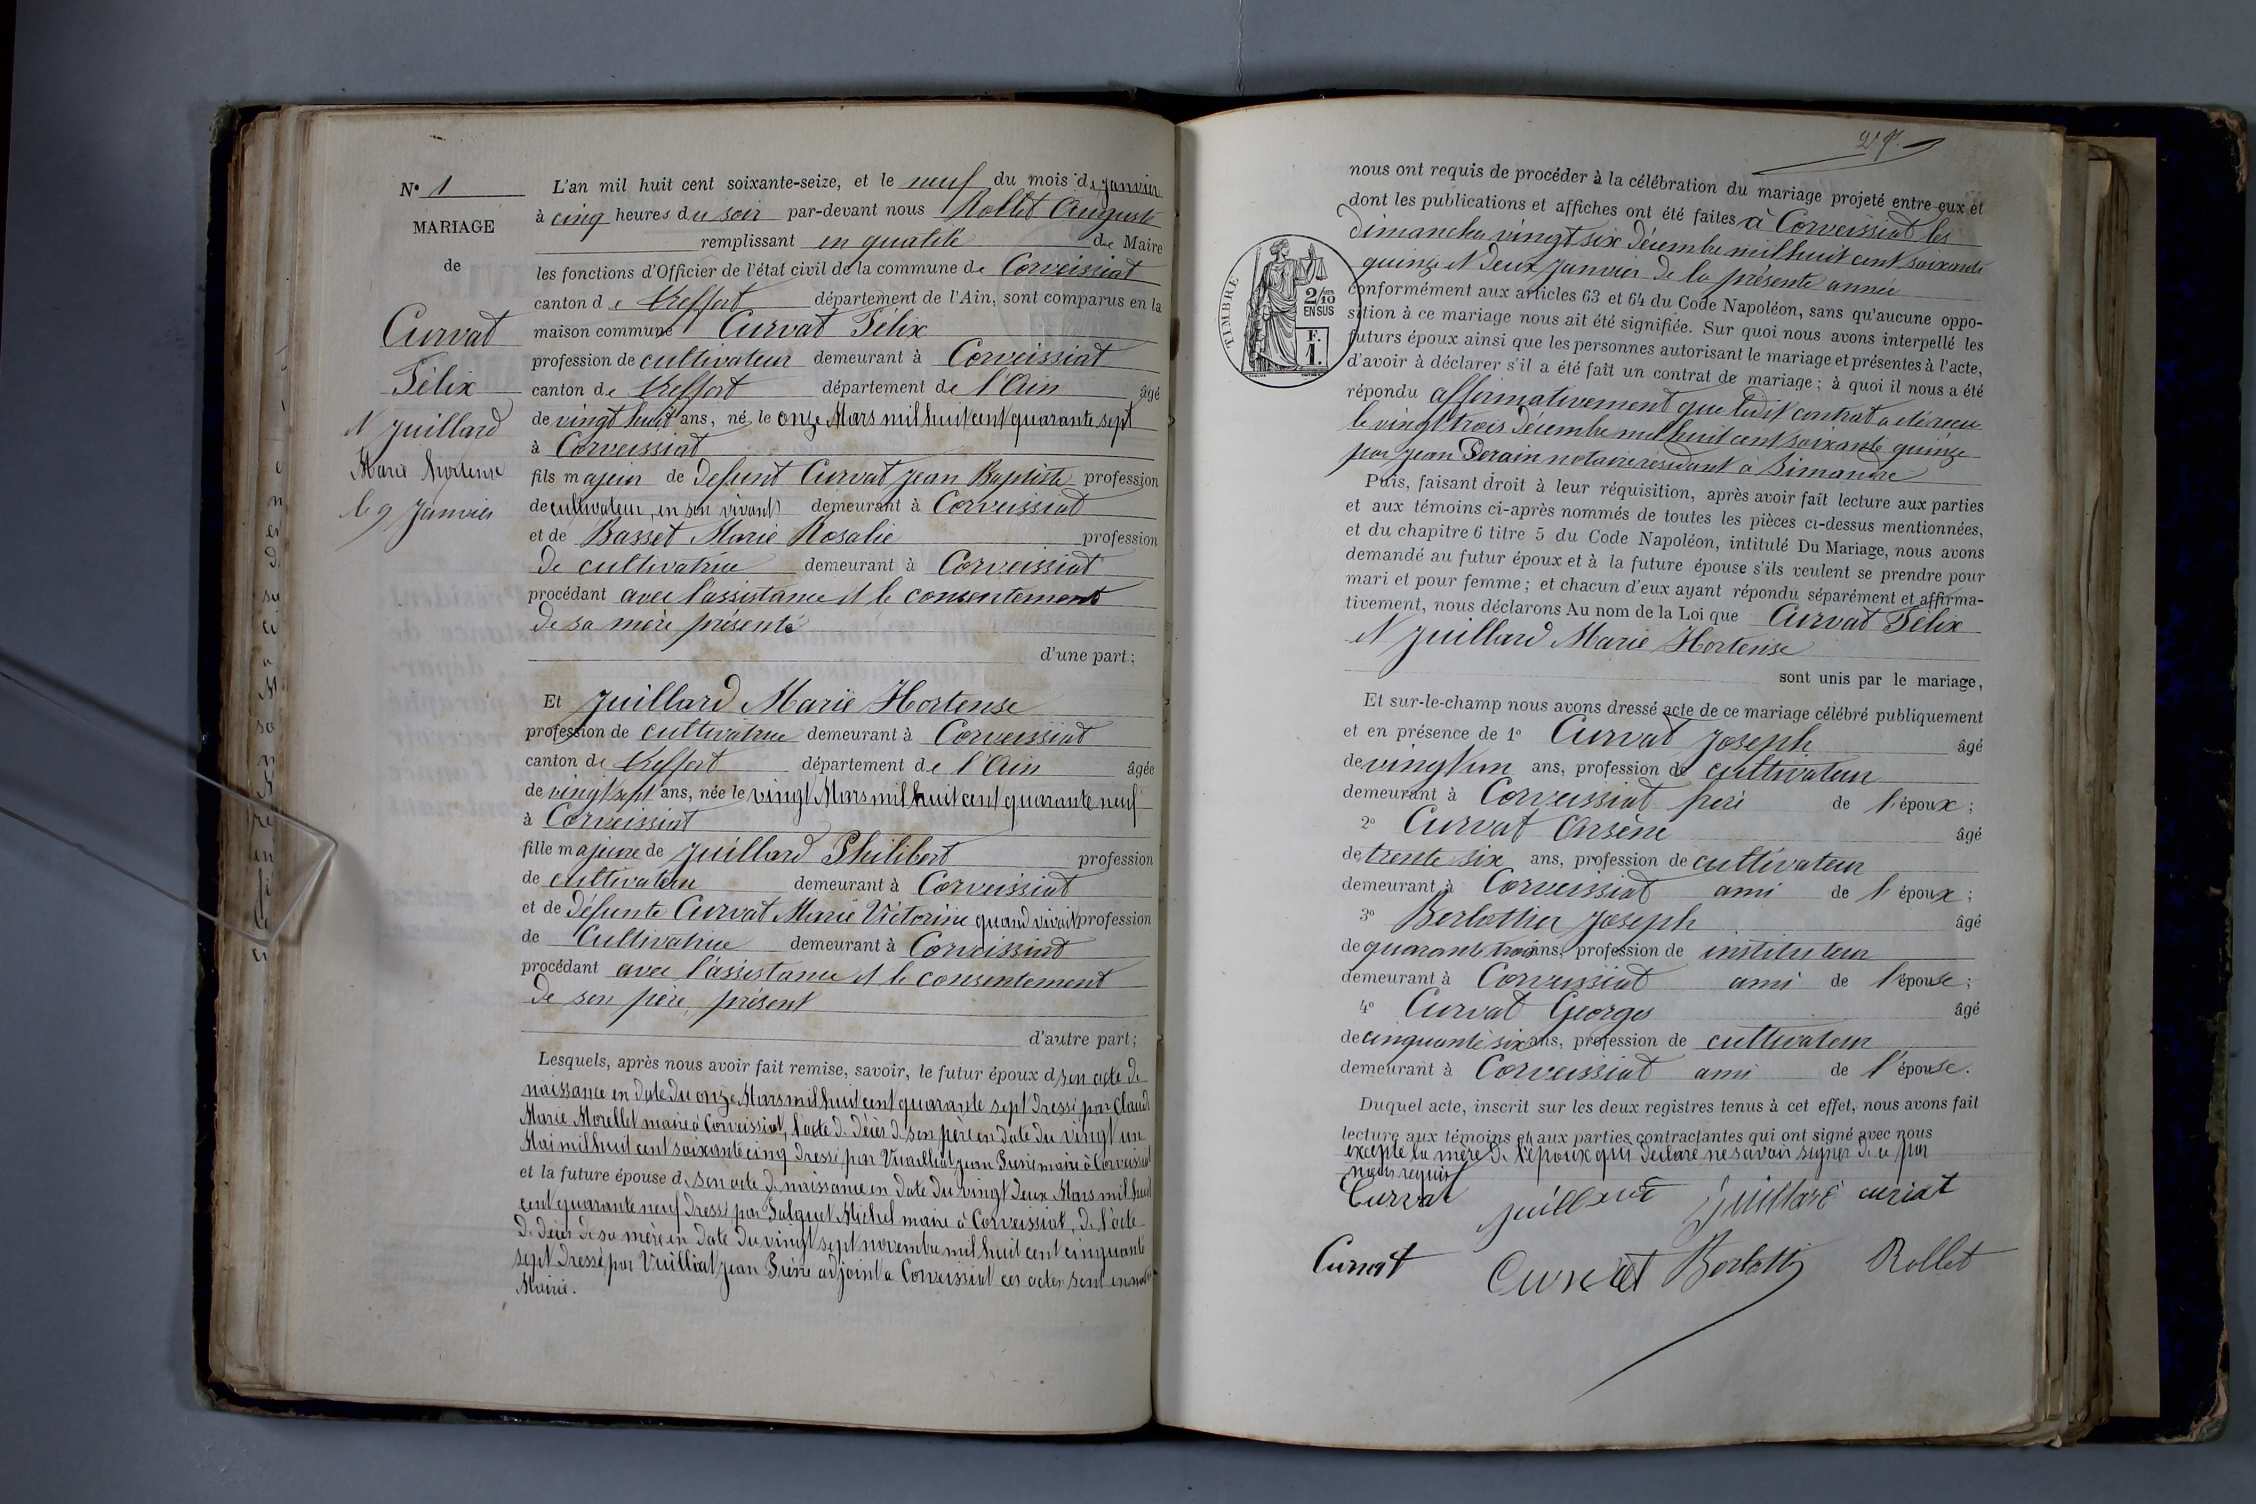 N° 1
MARIAGE
de
Curvat
Félix
et Juillard
Marie Hortense
le 9 Janvier
L'an mil huit cent soixante-seize, et le neuf du mois de Janvier
à cinq heures du soir par-devant nous Rollet Auguste
remplissant en qualité de Maire
les fonctions d'Officier de l'état civil de la commune de Corveissiat
canton de Treffort département de l'Ain, sont comparus en la
maison commune Curvat Félix
profession de cultivateur demeurant à Corveissiat
canton de Treffort département de l'Ain âgé
de vingt huit ans, né le onze Mars mil huit cent quarante sept
à Corveissiat
fils majeur de defunt Curvat Jean Baptiste profession
de cultivateur, en son vivant demeurant à Corveissiat
et de Basset Marie Rosalie profession
de cultivatrice demeurant à Corveissiat
procédant avec l'assistance et le consentement
de sa mère présente
d'une part;
Et Juillard Marie Hortense
profession de cultivatrice demeurant à Corveissiat
canton de Treffort département de l'Ain âgée
de vingt sept ans, née le vingt Mars mil huit cent quarante neuf
à Corveissiat
fille majeure de Juillard Philibert profession
de cultivateur demeurant à Corveissiat
et de Défunte Curvat Marie Victorine quand vivait profession
de Cultivatrice demeurant à Corveissiat
procédant avec l'assistance et le consentement
de son père, présent
d'autre part;
Lesquels, après nous avoir fait remise, savoir, le futur époux de son acte de
naissance en date du onze Mars mil huit cent quarante sept dressé par Claude
Marie Morellet maire à Corveissiat, l'acte de décès de son père en date du vingt un
Mai mil huit cent soixante cinq dressé par Vuilliat Jean Frené maire à Corveissiat
et la future épouse de son acte de naissance en date du vingt deux Mars mil huit
cent quarante neuf dressé par Michel maire à Corveissiat, de l'acte
de décès de sa mère en date du vingt sept novembre mil huit cent cinquante
sept dressé par Vuilliat Jean Frené adjoint à Corveissiat ces actes sont en notre
Mairie.
27.
nous ont requis de procéder à la célébration du mariage projeté entre eux et
dont les publications et affiches ont été faites à Corveissiat les
dimanches vingt six décembre mil huit cent soixante
quinze et deux Janvier de la présente année
conformément aux articles 63 et 64 du Code Napoléon, sans qu'aucune oppo-
sition à ce mariage nous ait été signifiée. Sur quoi nous avons interpellé les
futurs époux ainsi que les personnes autorisant le mariage et présentes à l'acte,
d'avoir à déclarer s'il a été fait un contrat de mariage; à quoi il nous a été
répondu affirmativement que ledit contrat a été reçu
le vingt trois décembre mil huit cent soixante quinze
par Jean Perain notaire résidant à Simandre
TIMBRE
2/10
EN SUS
F.
1.
Puis, faisant droit à leur réquisition, après avoir fait lecture aux parties
et aux témoins ci-après nommés de toutes les pièces ci-dessus mentionnées,
et du chapitre 6 titre 5 du Code Napoléon, intitulé Du Mariage, nous avons
demandé au futur époux et à la future épouse s'ils veulent se prendre pour
mari et pour femme; et chacun d'eux ayant répondu séparément et affirma-
tivement, nous déclarons Au nom de la Loi que Curvat Félix
et Juillard Marie Hortense
sont unis par le mariage,
Et sur-le-champ nous avons dressé acte de ce mariage célébré publiquement
et en présence de 1° Curvat Joseph âgé
de vingt un ans, profession de cultivateur
demeurant à Corveissiat frère de l'époux;
2° Curvat Arsène âgé
de trente six ans, profession de cultivateur
demeurant à Corveissiat ami de l'époux;
3° Berlottier Joseph âgé
de quarante trois ans, profession de instituteur
demeurant à Corveissiat ami de l'épouse;
4° Curvat Georges âgé
de cinquante six ans, profession de cultivateur
demeurant à Corveissiat ami de l'épouse.
Duquel acte, inscrit sur les deux registres tenus à cet effet, nous avons fait
lecture aux témoins et aux parties contractantes qui ont signé avec nous
excepté la mère de l'époux qui déclaré ne savoir signer de ce par
nous requis
Curvat Juillard Juillard curvat
Curvat Curvat Berlottier Rollet